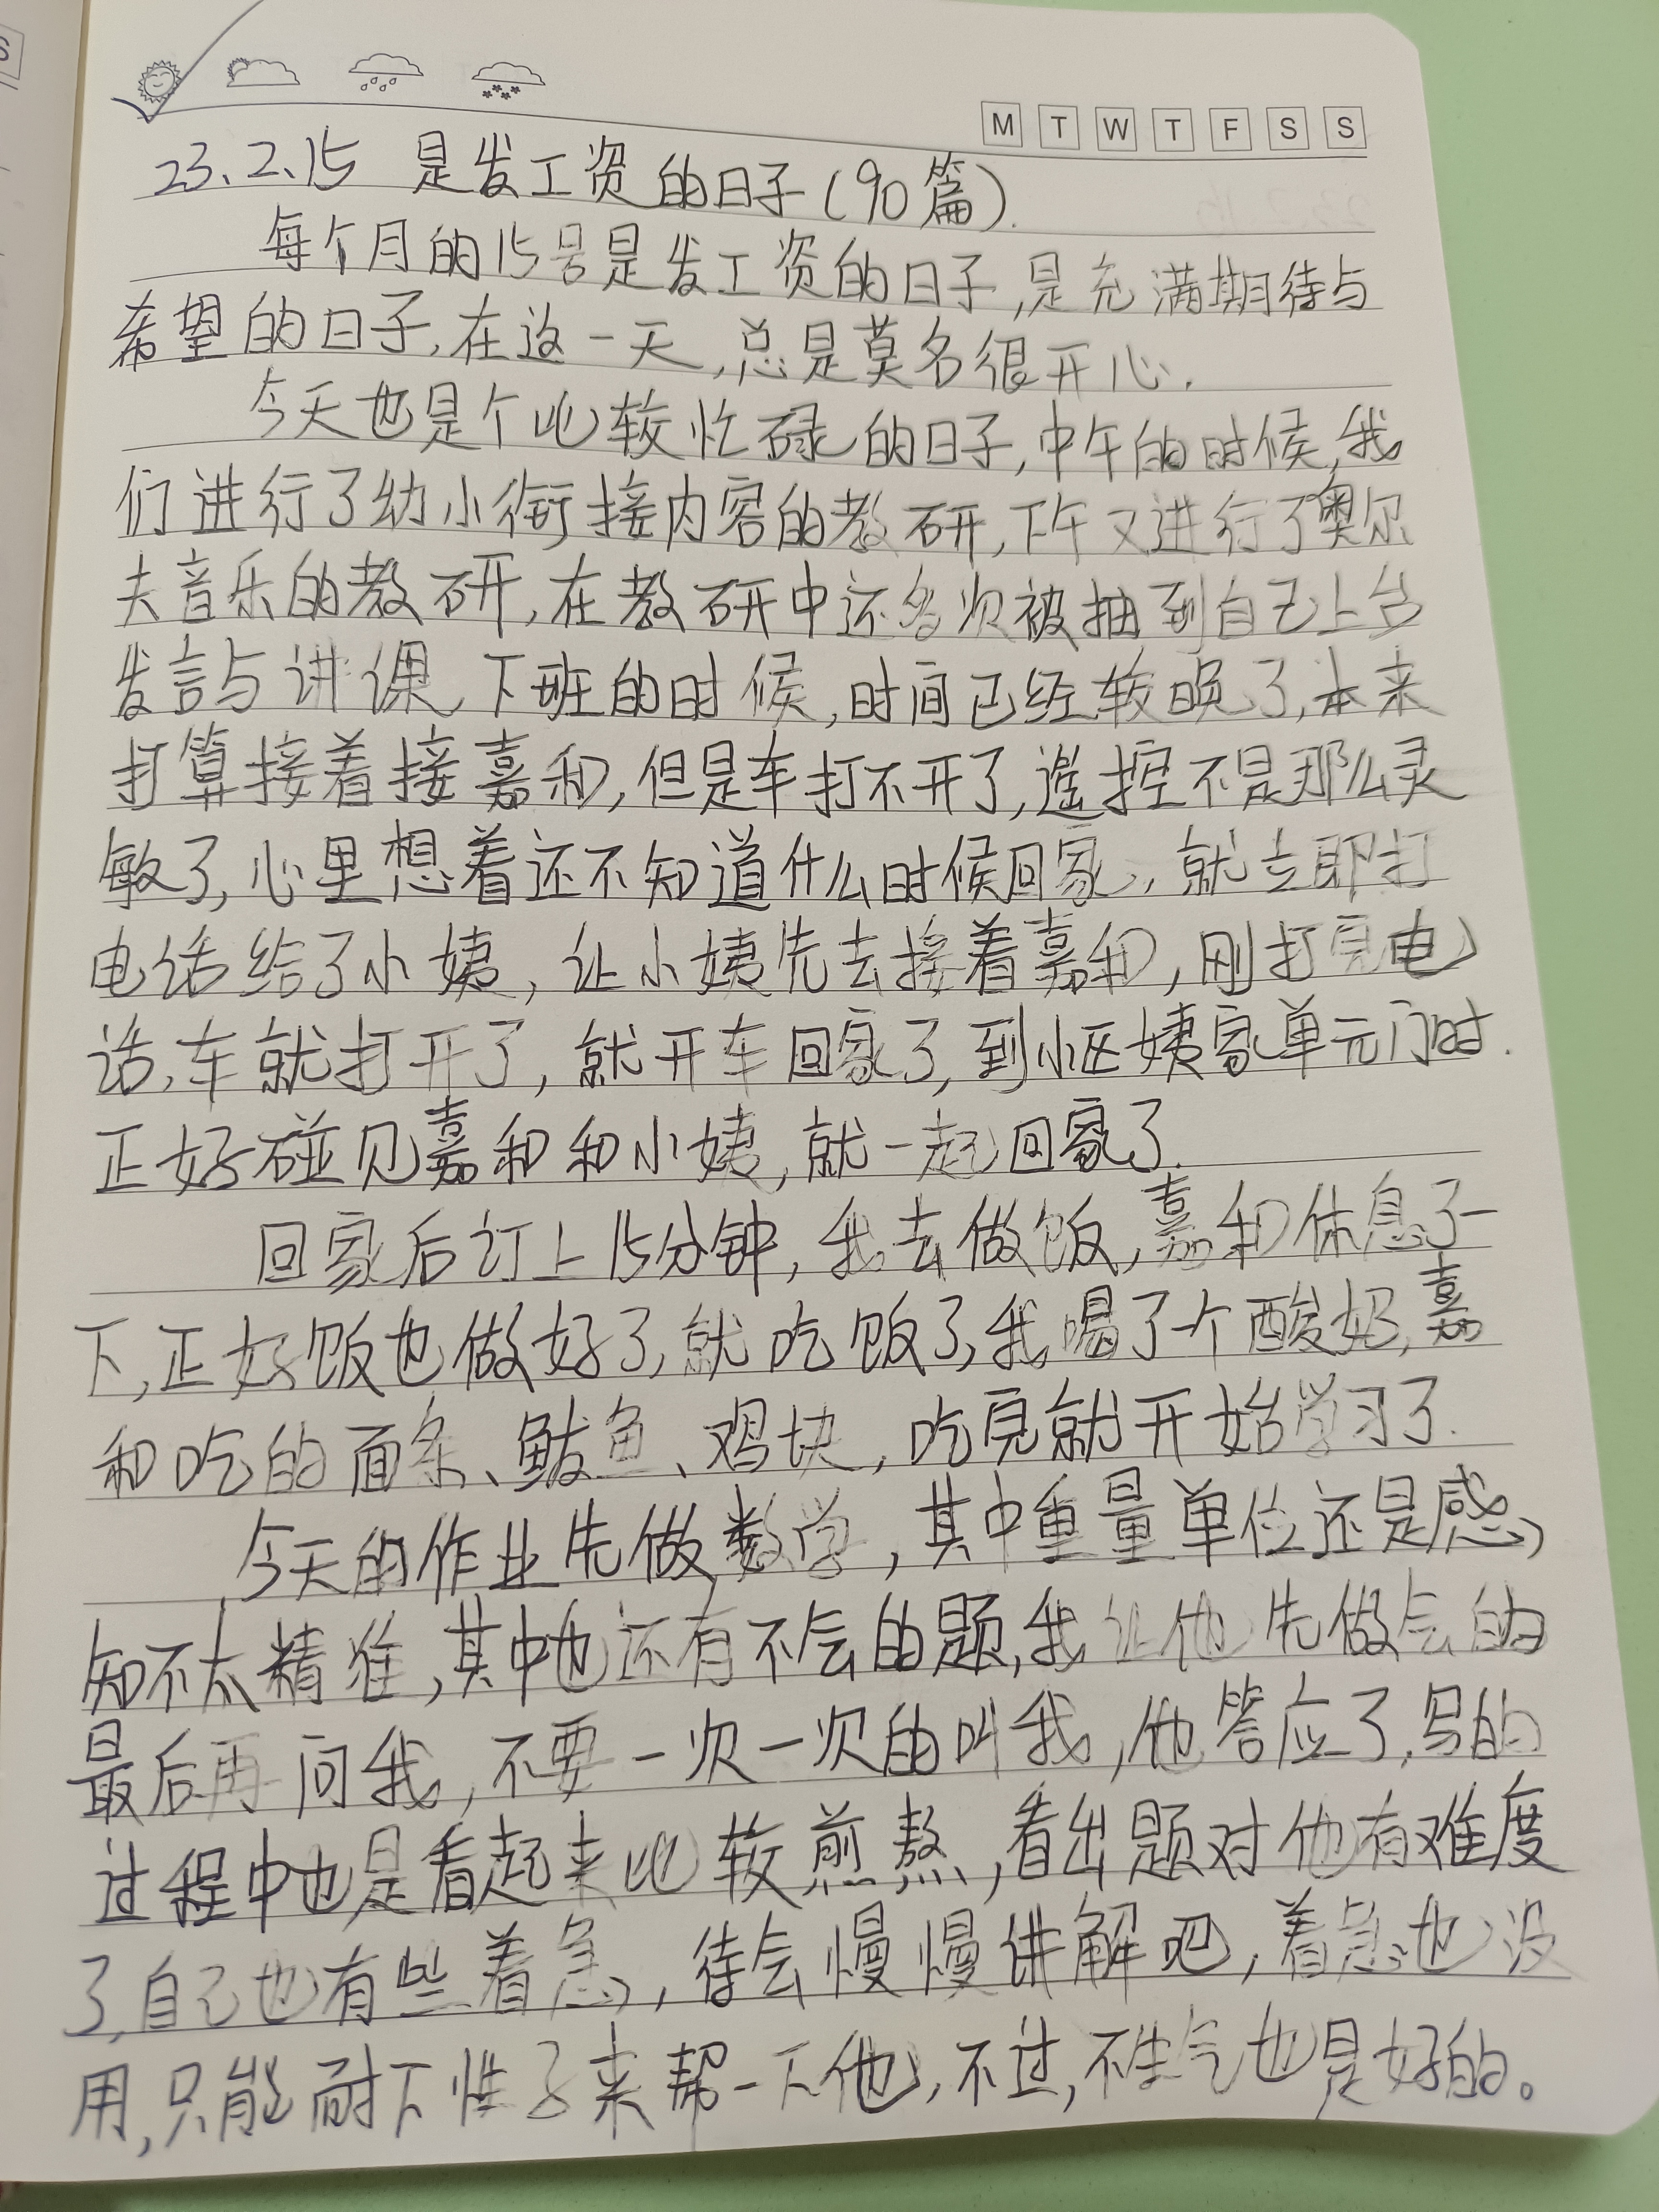 M T W T F S S
23、2、15 是发工资的日子(90篇).
每个月的15号是发工资的日子,是充满期待与
希望的日子,在这一天,总是莫名很开心.
今天也是个比较忙碌的日子,中午的时候,我
们进行了幼小衔接内容的教研,下午又进行了奥尔
夫音乐的教研,在教研中还多次被抽到自己上台
发言与讲课,下班的时候,时间已经较晚了,本来
打算接着接嘉和,但是车打不开了,遥控不是那么灵
敏了,心里想着还不知道什么时候回家,就立即打
电话给了小姨,让小姨先去接着嘉和,刚打完电
话,车就打开了,就开车回家了,到小区姨家单元门时.
正好碰见嘉和和小姨,就一起回家了.
回家后订上15分钟,我去做饭,嘉和休息了一
下,正好饭也做好了,就吃饭了,我喝了一个酸奶,嘉
和吃的面条、鲅鱼、鸡块,吃完就开始学习了.
今天的作业先做数学,其中重量单位还是感
知不太精准,其中也还有不会的题,我让他先做会的
最后再问我,不要一次一次的叫我,他答应了,写的
过程中也是看起来比较煎熬,看出题对他有难度
了,自己也有些着急,待会慢慢讲解吧,着急也没
用,只能耐下性子来帮一下他,不过,不生气也是好的。